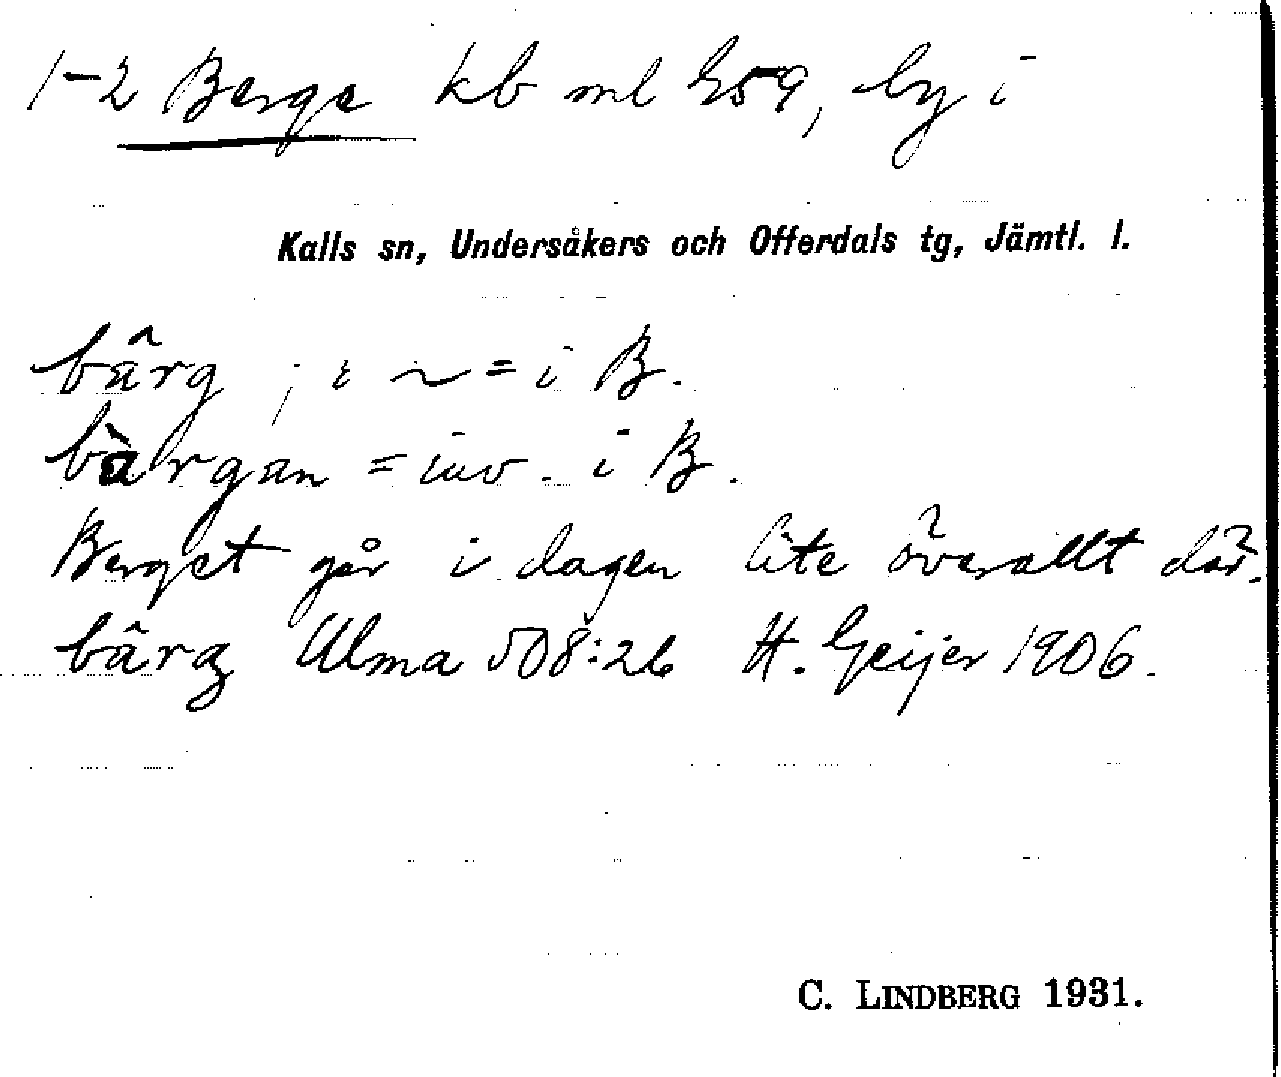 1-2 Berge kb ml 259, by i
Kalls sn, Undersåkers och Offerdals tg, Jämtl. l.
bârg, i ~ = i B.
bàrgan = inv. i B.
Berget går i dagen lite överallt där.
bârg Ulma 508:26 H. Geijer 1906.
C. LINDBERG 1931.